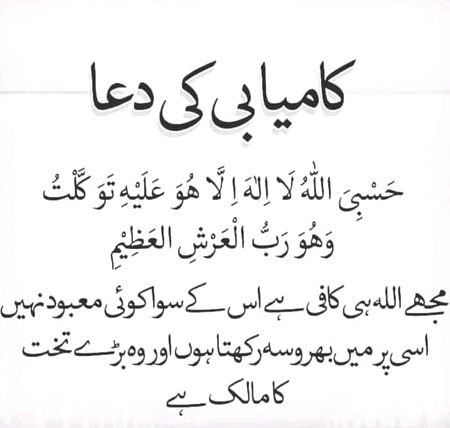 کامیابی کی دعا
حَسْبِيَ اللّٰهُ لَا اِلٰهَ اِلَّا هُوَ عَلَيْهِ تَوَكَّلْتُ
وَهُوَ رَبُّ الْعَرْشِ العَظِيْمِ
مجھے اللہ ہی کافی ہے اس کے سوا کوئی معبود نہیں
اسی پر میں بھروسہ رکھتا ہوں اور وہ بڑے تخت
کا مالک ہے